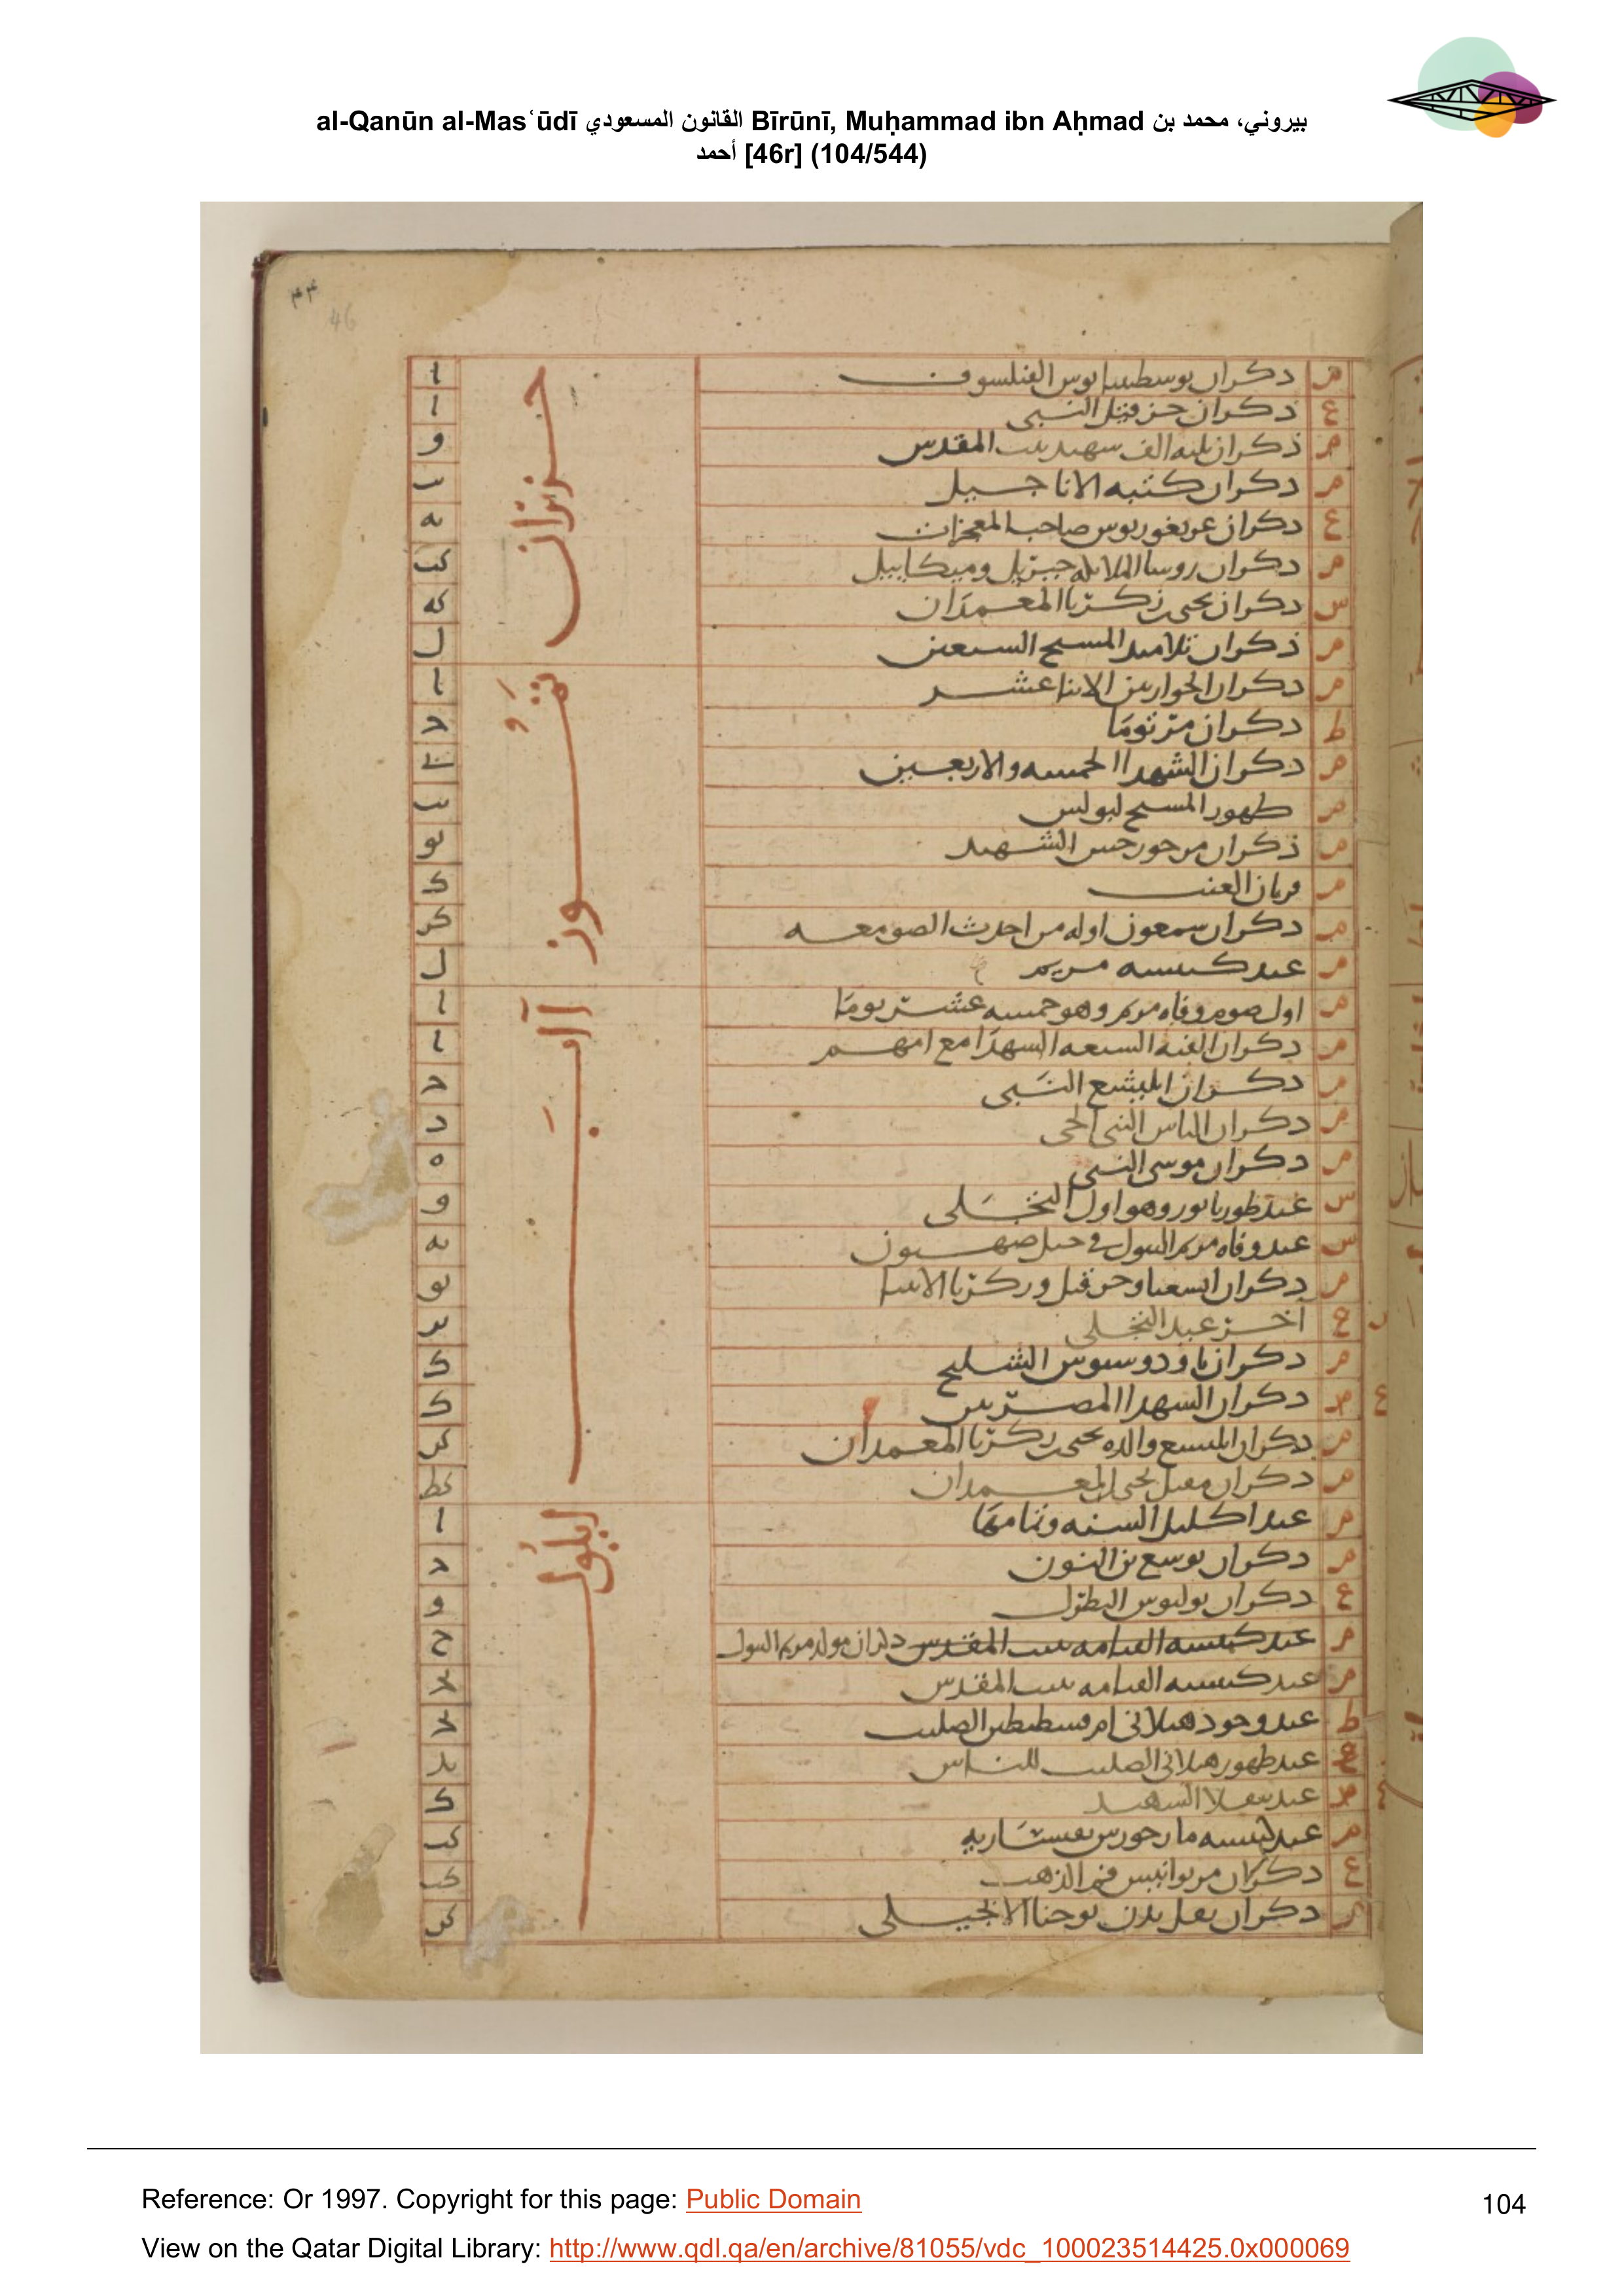 al-Qanūn al-Masʿūdī القانون المسعودي Bīrūnī, Muḥammad ibn Aḥmad بيروني، محمد بن
أحمد [46r] (104/544)
۴۴
46
حزيران
تموز
آب
ايلول
م دكران يوسطينيانوس الفيلسوف ا
ع ذكران حزقيل النبي ا
م ذكران ثلثه الف شهيد ببيت المقدس و
م دكران كتبه الاناجيل
ع دكران غريغوريوس صاحب المعجزات يه
م دكران روسا الملائكه جبريل وميكاييل كب
س دكران يحيى بن زكريا المعمدان كه
م ذكران تلاميذ المسيح السبعين ل
م دكران الحواريين الاثنا عشر ا
ط دكران مر توما د
م دكران الشهدا الخمسه والاربعين
م ظهور المسيح لبولس
م ذكران مر جورجيس الشهيد يو
م قربان العنب ك
م دكران سمعون اوله من احدث الصومعه كز
م عيد كنيسه مريم ل
م اول صوم وفاه مريم وهو خمسه عشر يوما ا
م دكران الفتيه السبعه الشهدا مع امهم ا
م دكران اليشع النبي
م دكران الياس النبي الحي د
م دكران موسى النبي ه
س عيد طور تابور وهو اول التجلي و
س عيد وفاه مريم البتول في جبل صهيون يه
م دكران اشعيا وحزقيل وزكريا الانبيا يو
ع آخر عيد التجلي
م دكران تاودوسيوس الشليح ك
ع م دكران الشهدا المصريين ك
م دكران اليسبع والده يحيى بن زكريا المعمدان كو
م دكران مقتل يحيى المعمدان كط
م عيد اكليل السنه وتمامها ا
م دكران يوشع بن النون
ع دكران بولبوس البطرك و
م عيد كنيسه القيامه ببيت المقدس دكران مولد مريم البتول ح
م عيد كنيسه القيامه ببيت المقدس يج
ط عيد وجود هيلاني ام قسطنطين الصليب يج
ع عيد ظهور هيلاني الصليب للناس يد
م عيد الشهيد ك
م عيد كنيسه مار جورس بقيساريه كب
ع دكران مر يوانيس فم الذهب كب
م دكران نقل بدن يوحنا الانجيلي كو
Reference: Or 1997. Copyright for this page: Public Domain
View on the Qatar Digital Library: http://www.qdl.qa/en/archive/81055/vdc_100023514425.0x000069
104